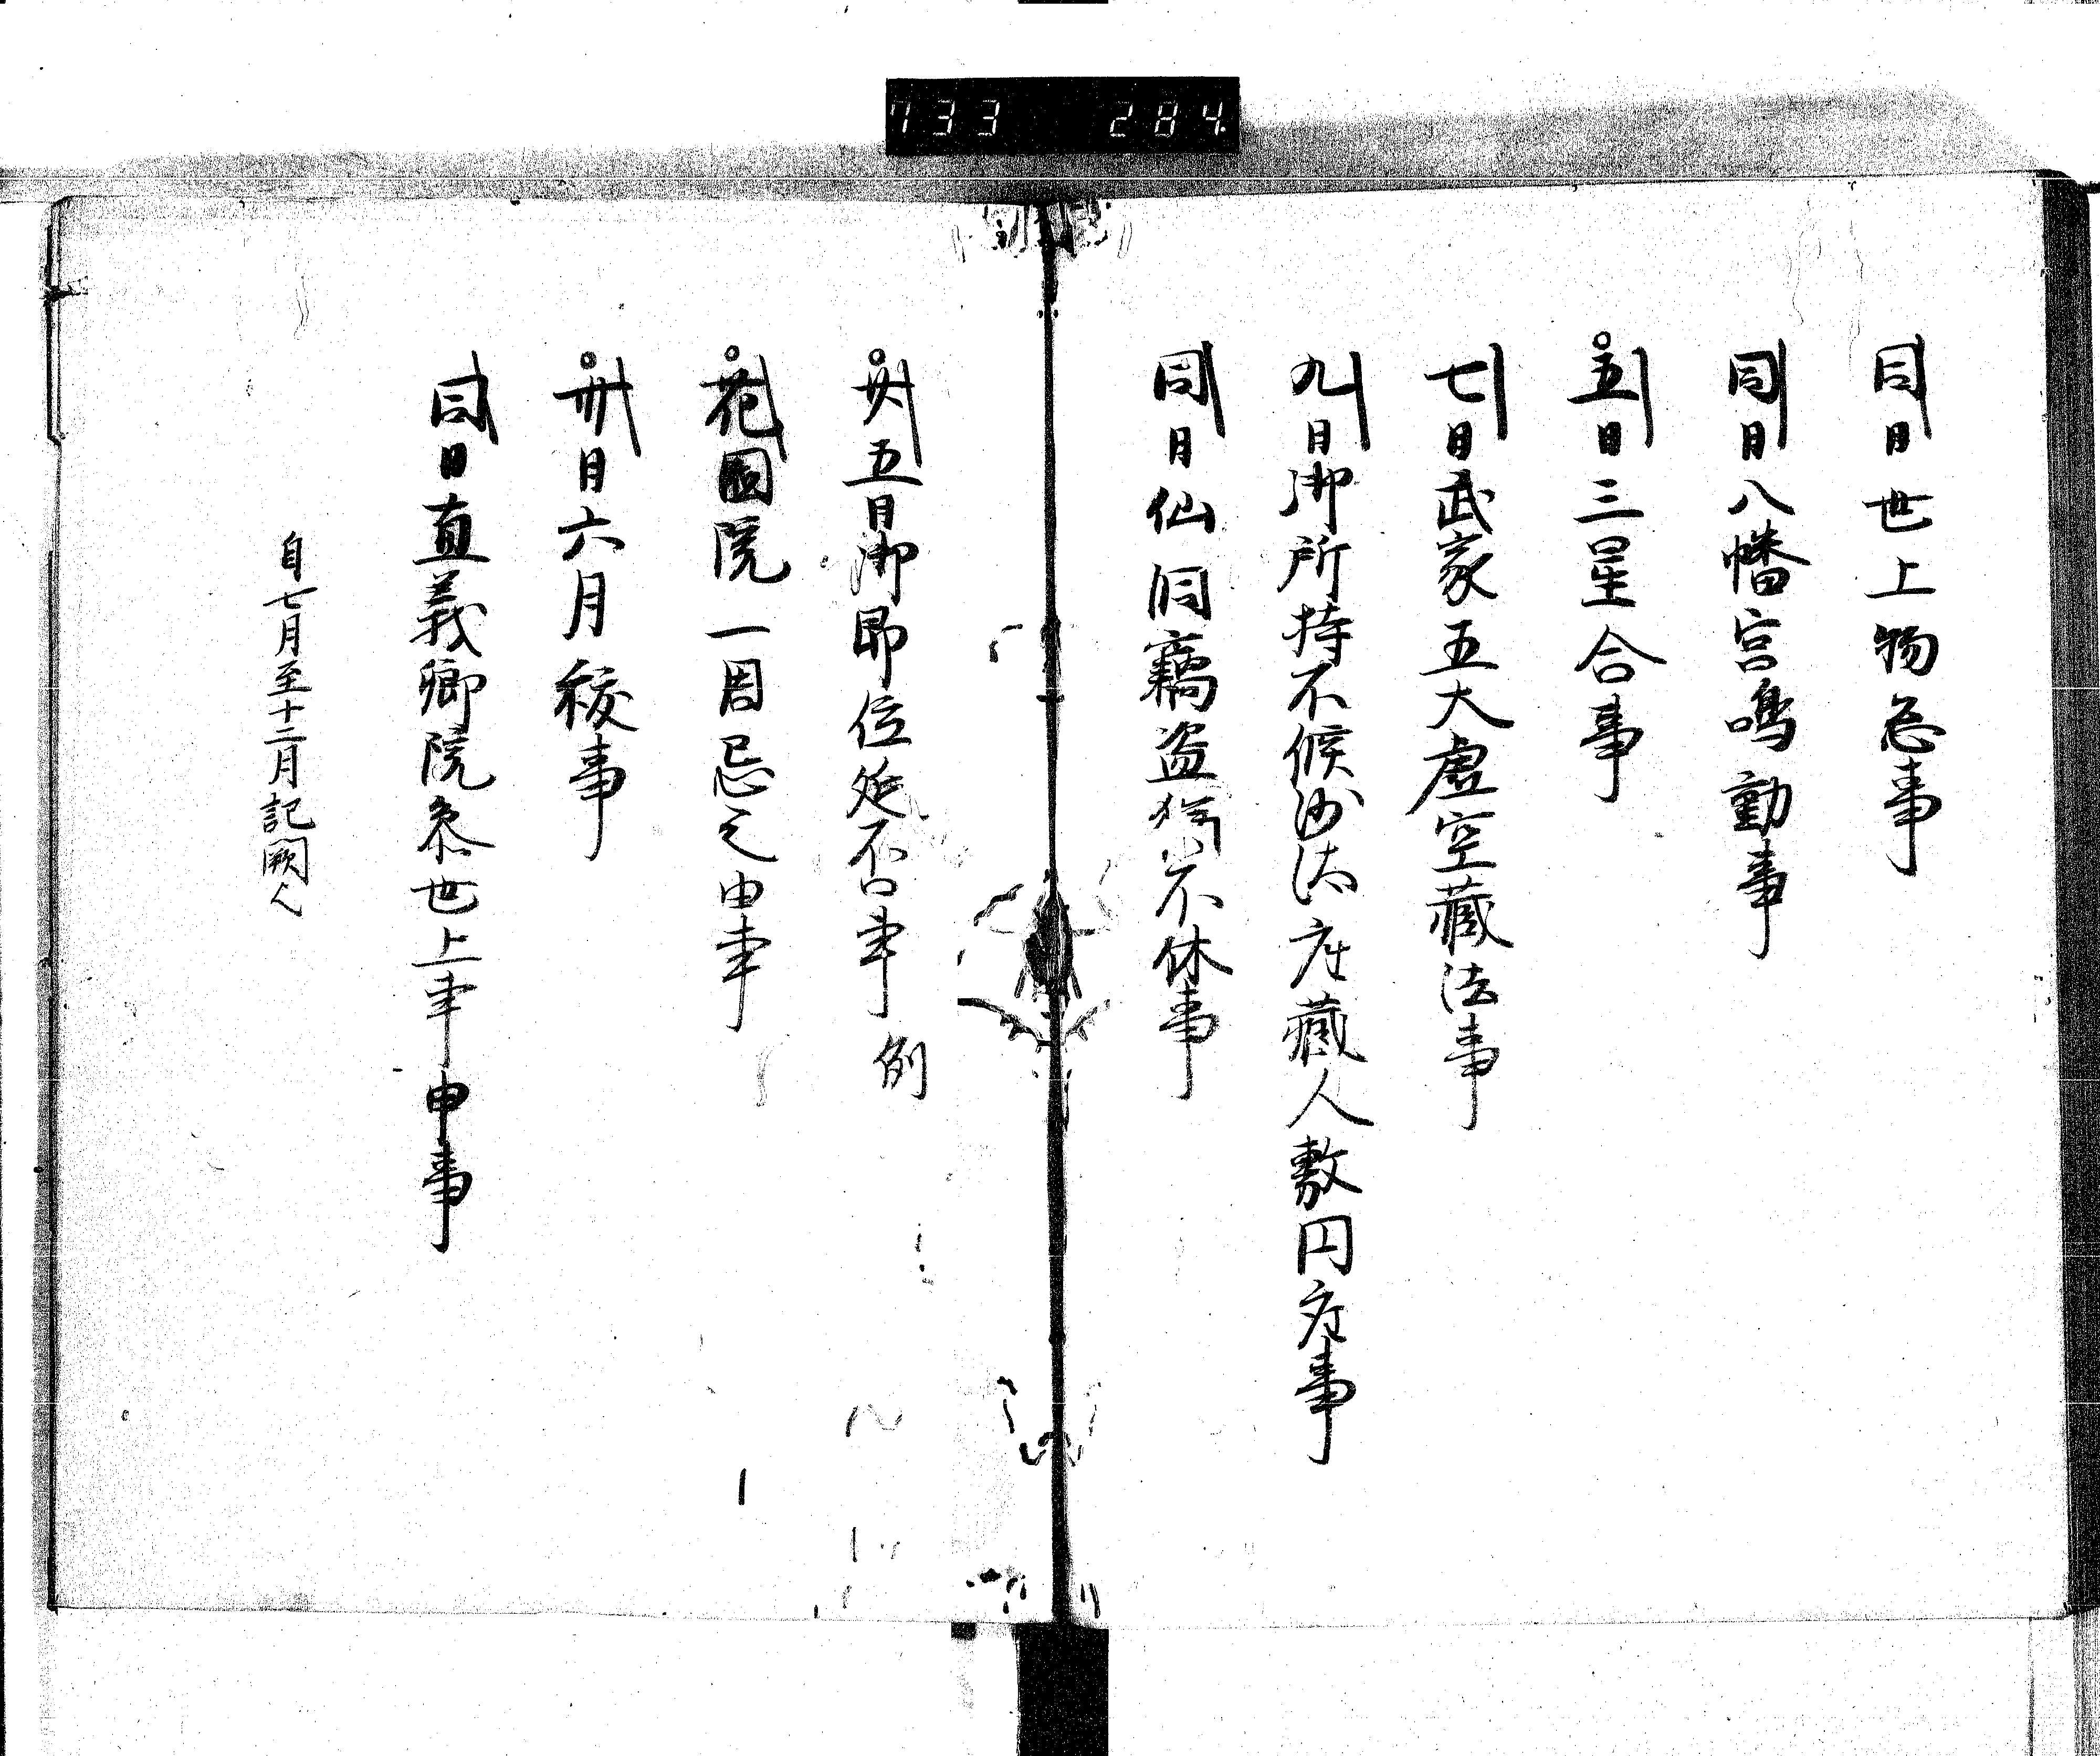 733 284
同日世上物忩事
同日八幡宮鳴動事
五日三星合事
七日武家五大虚空蔵法事
九日御所持不候沙汰座蔵人敷円座事
同日仙洞竊盗猶不休事
廿五日御即位延否事 例
花園院一周忌之由事
卅日六月祓事
同日直義卿院参世上事申事
自七月至十二月記闕